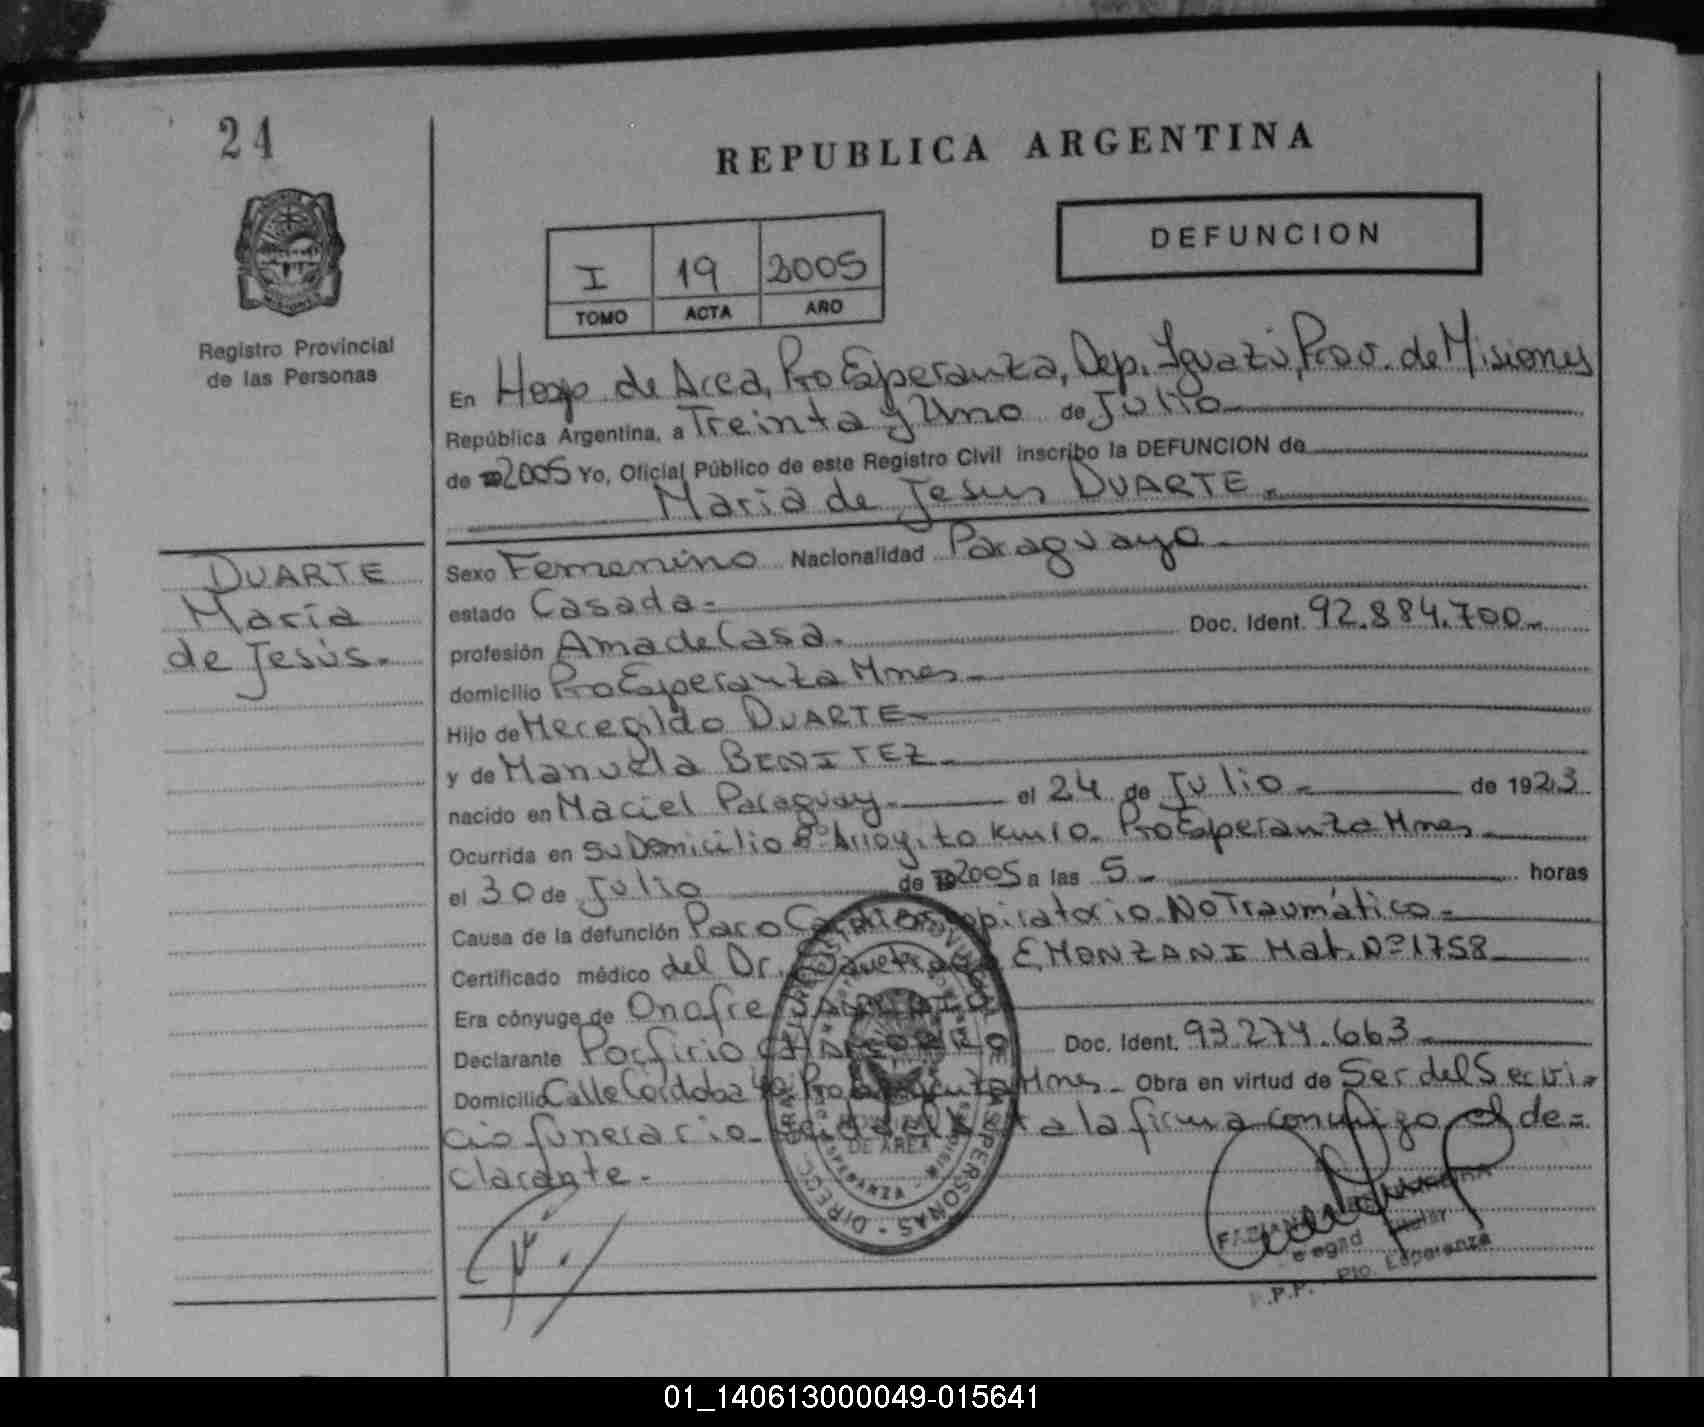 24
REPUBLICA ARGENTINA
DEFUNCION
I 19 2005
TOMO ACTA AÑO
Registro Provincial
de las Personas
En Hosp de Area, Pto Esperanza, Dep. Iguazú, Prov. de Misiones
República Argentina, a Treinta y Uno de Julio
de 2005 Yo, Oficial Público de este Registro Civil inscribo la DEFUNCION de
Maria de Jesus DUARTE.
DUARTE
María
de Jesús.
Sexo Femenino Nacionalidad Paraguaya
estado Casada
profesión Ama de Casa. Doc. Ident. 92.884.700
domicilio Pto Esperanza Mnes
Hijo de Meregildo DUARTE
y de Manuela BENITEZ
nacido en Maciel Paraguay el 24 de Julio de 1923
Ocurrida en su Domicilio Bº Arroyito km 10. Pto Esperanza Mnes
el 30 de Julio de 2005 a las 5 horas
Causa de la defunción Paro Cardiorespiratorio No Traumático
Certificado médico del Dr. E MONZANI Mat. Nº 1758
Era cónyuge de Onofre
Declarante Porfirio Doc. Ident. 93.274.663
Domicilio Calle Córdoba Mnes Obra en virtud de Ser del Servi
cio funerario a la firma conmigo el de=
clarante.
DE AREA
Pto. Esperanza
01_140613000049-015641